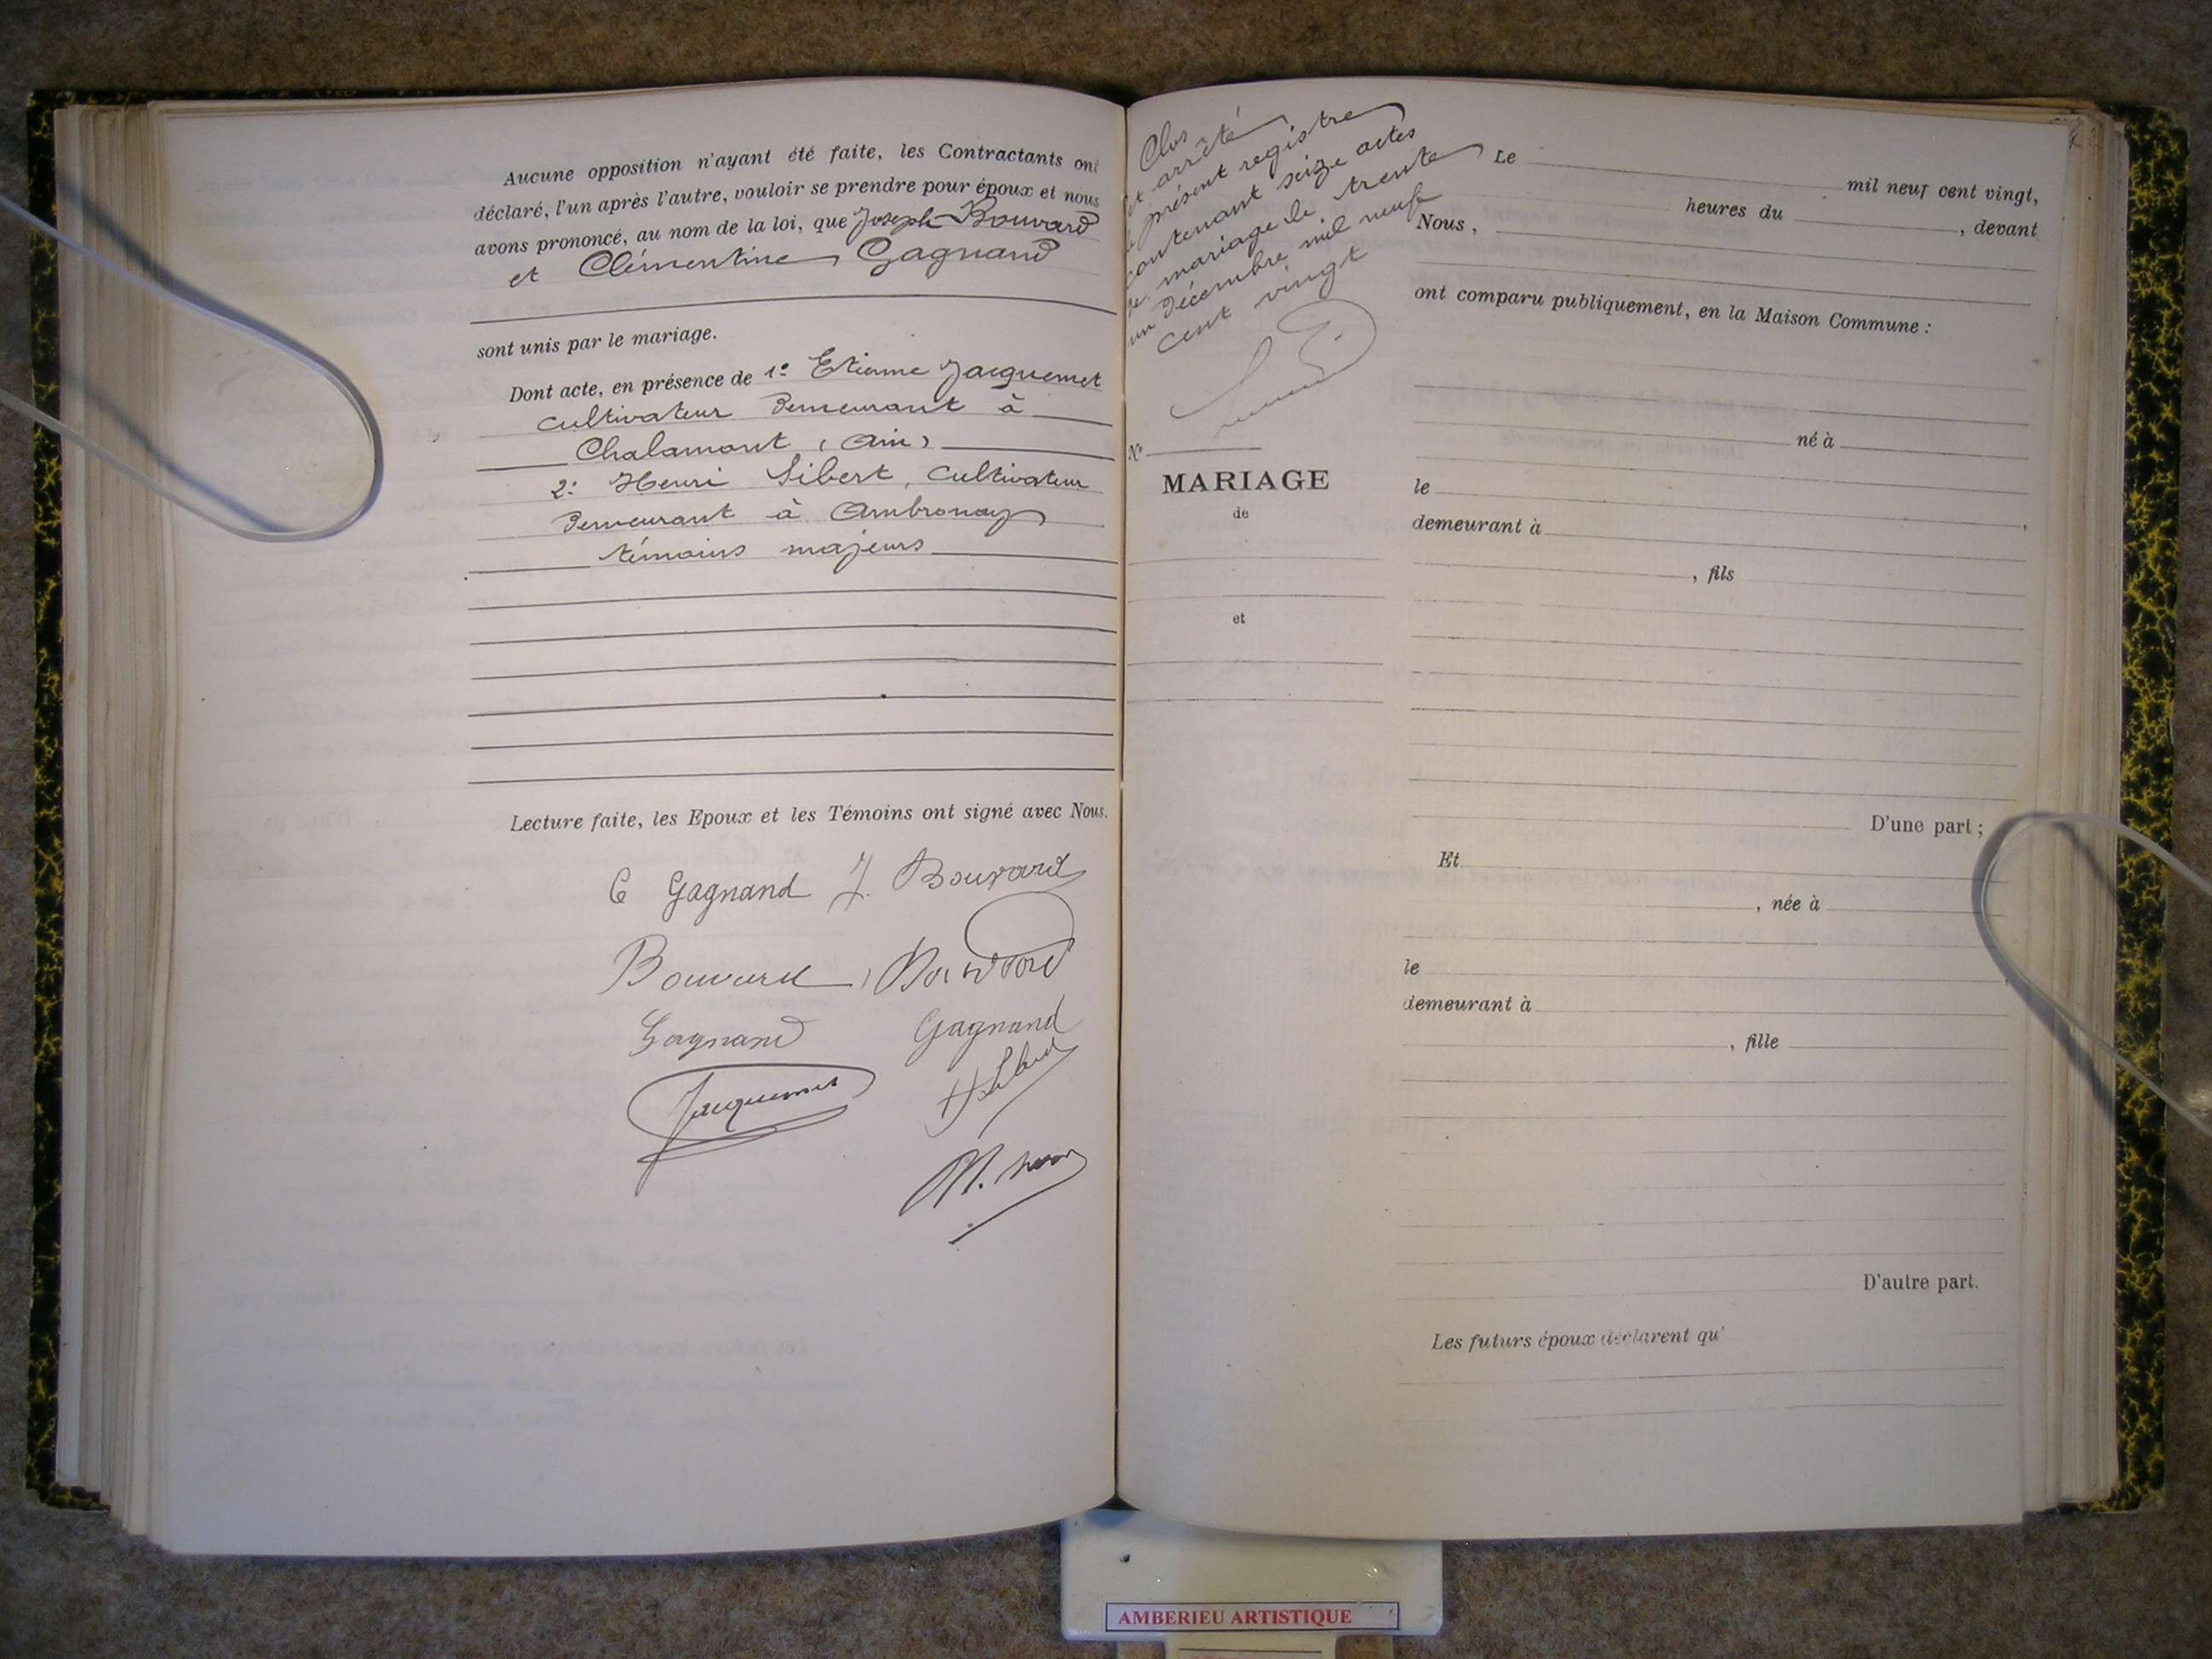 Aucune opposition n'ayant été faite, les Contractants ont
déclaré, l'un après l'autre, vouloir se prendre pour époux et nous
avons prononcé, au nom de la loi, que Joseph Bouvard
et Clémentine Gagnand
sont unis par le mariage.
Dont acte, en présence de 1° Etienne Jacquemet
cultivateur demeurant à
Chalamont (Ain)
2° Henri Sibert, cultivateur
demeurant à Ambronay
témoins majeurs
Lecture faite, les Epoux et les Témoins ont signé avec Nous.
C Gagnand J. Bouvard
Bouvard Bouvard
Gagnand Gagnand
Jacquemet H Sibert
Clos
et arrêté
le présent registre
contenant seize actes
de mariage le trente
un décembre mil neuf
cent vingt
N°
MARIAGE
de
et
Le
mil neuf cent vingt,
heures du , devant
Nous,
ont comparu publiquement, en la Maison Commune :
né à
le
demeurant à ,
, fils
D'une part ;
Et
, née à
le ,
demeurant à
, fille
D'autre part.
Les futurs époux déclarent qu'
AMBERIEU ARTISTIQUE